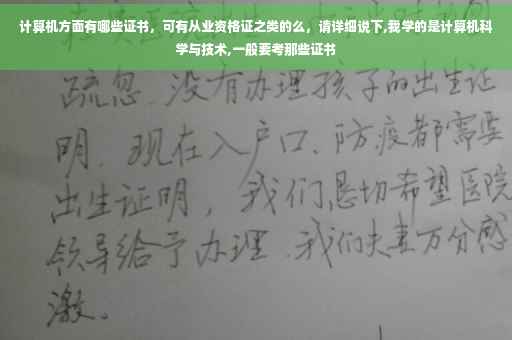 计算机方面有哪些证书，可有从业资格证之类的么，请详细说下,我学的是计算机科
学与技术,一般要考那些证书
疏忽.没有办理孩子的出生证
明.现在入户口、防疫都需要
出生证明，我们恳切希望医院
领导给予办理.我们夫妻万分感
激.